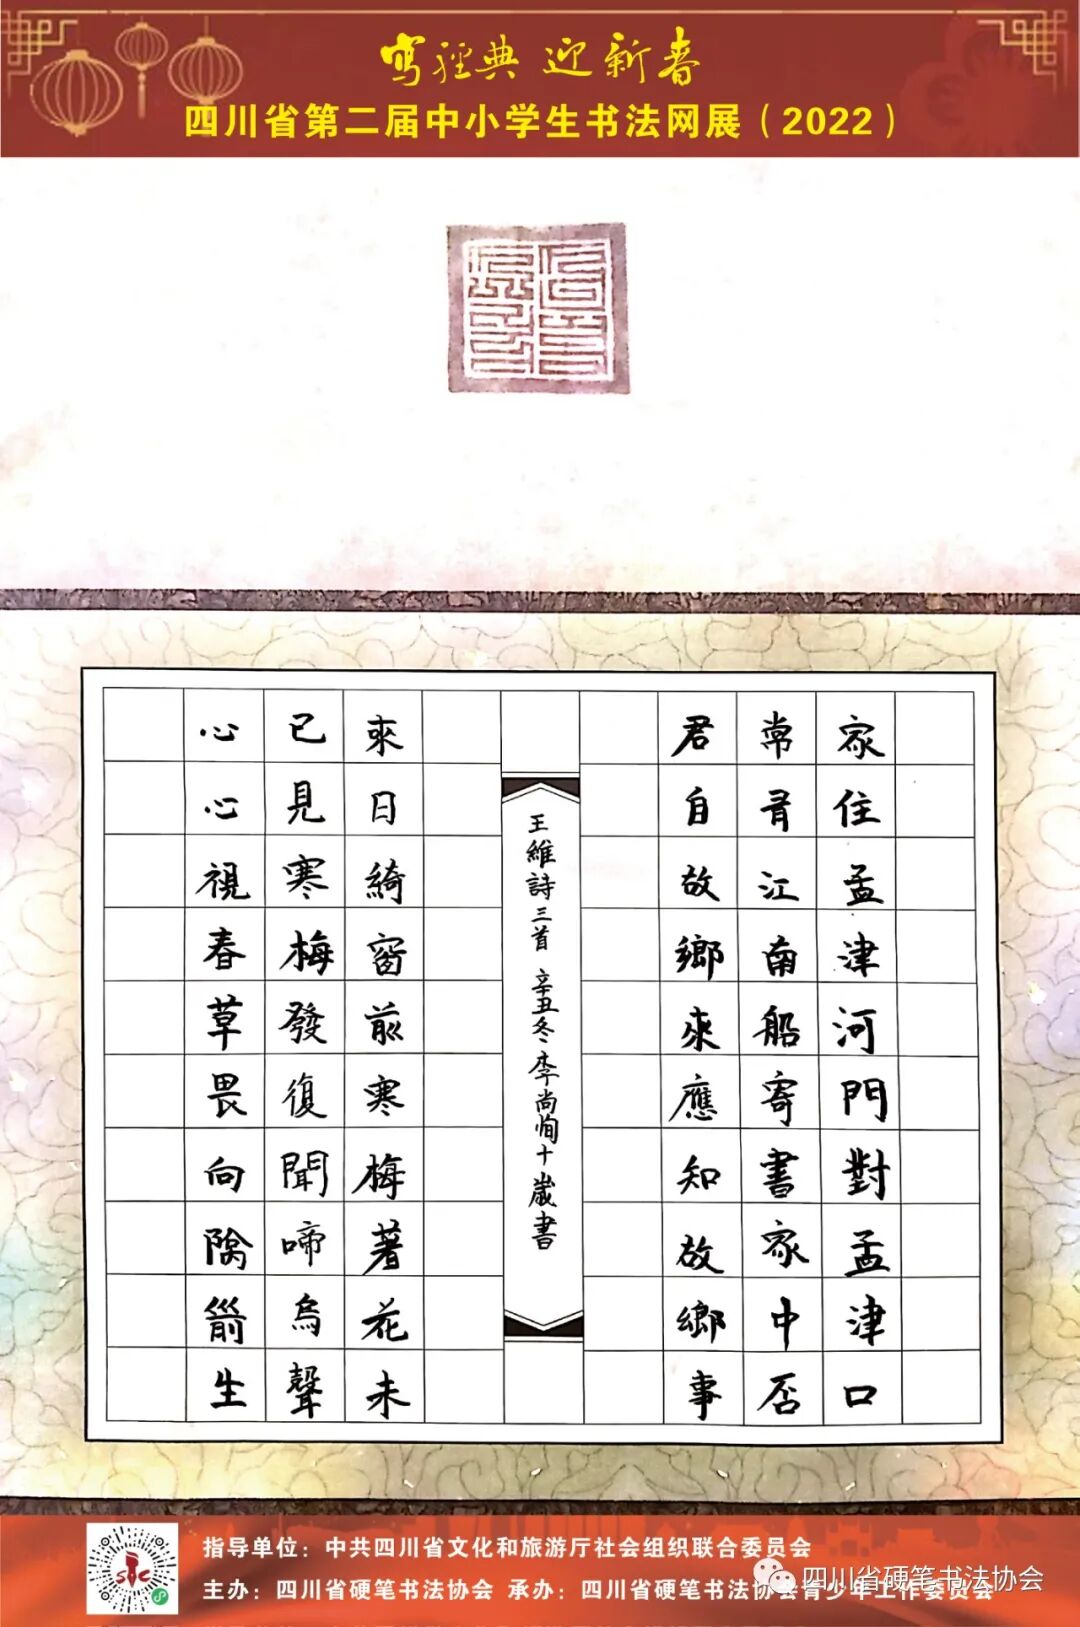 写经典 迎新春
四川省第二届中小学生书法网展（2022）
家住孟津河門對孟津口
常有江南船寄書家中否
君自故鄉來應知故鄉事
王維詩三首 辛丑冬李尚恂十歲書
來日綺窗前寒梅著花未
已見寒梅發復聞啼鳥聲
心心視春草畏向階前生
指导单位：中共四川省文化和旅游厅社会组织联合委员会
主办：四川省硬笔书法协会 承办：四川省硬笔书法协会青少年工作委员会
四川省硬笔书法协会